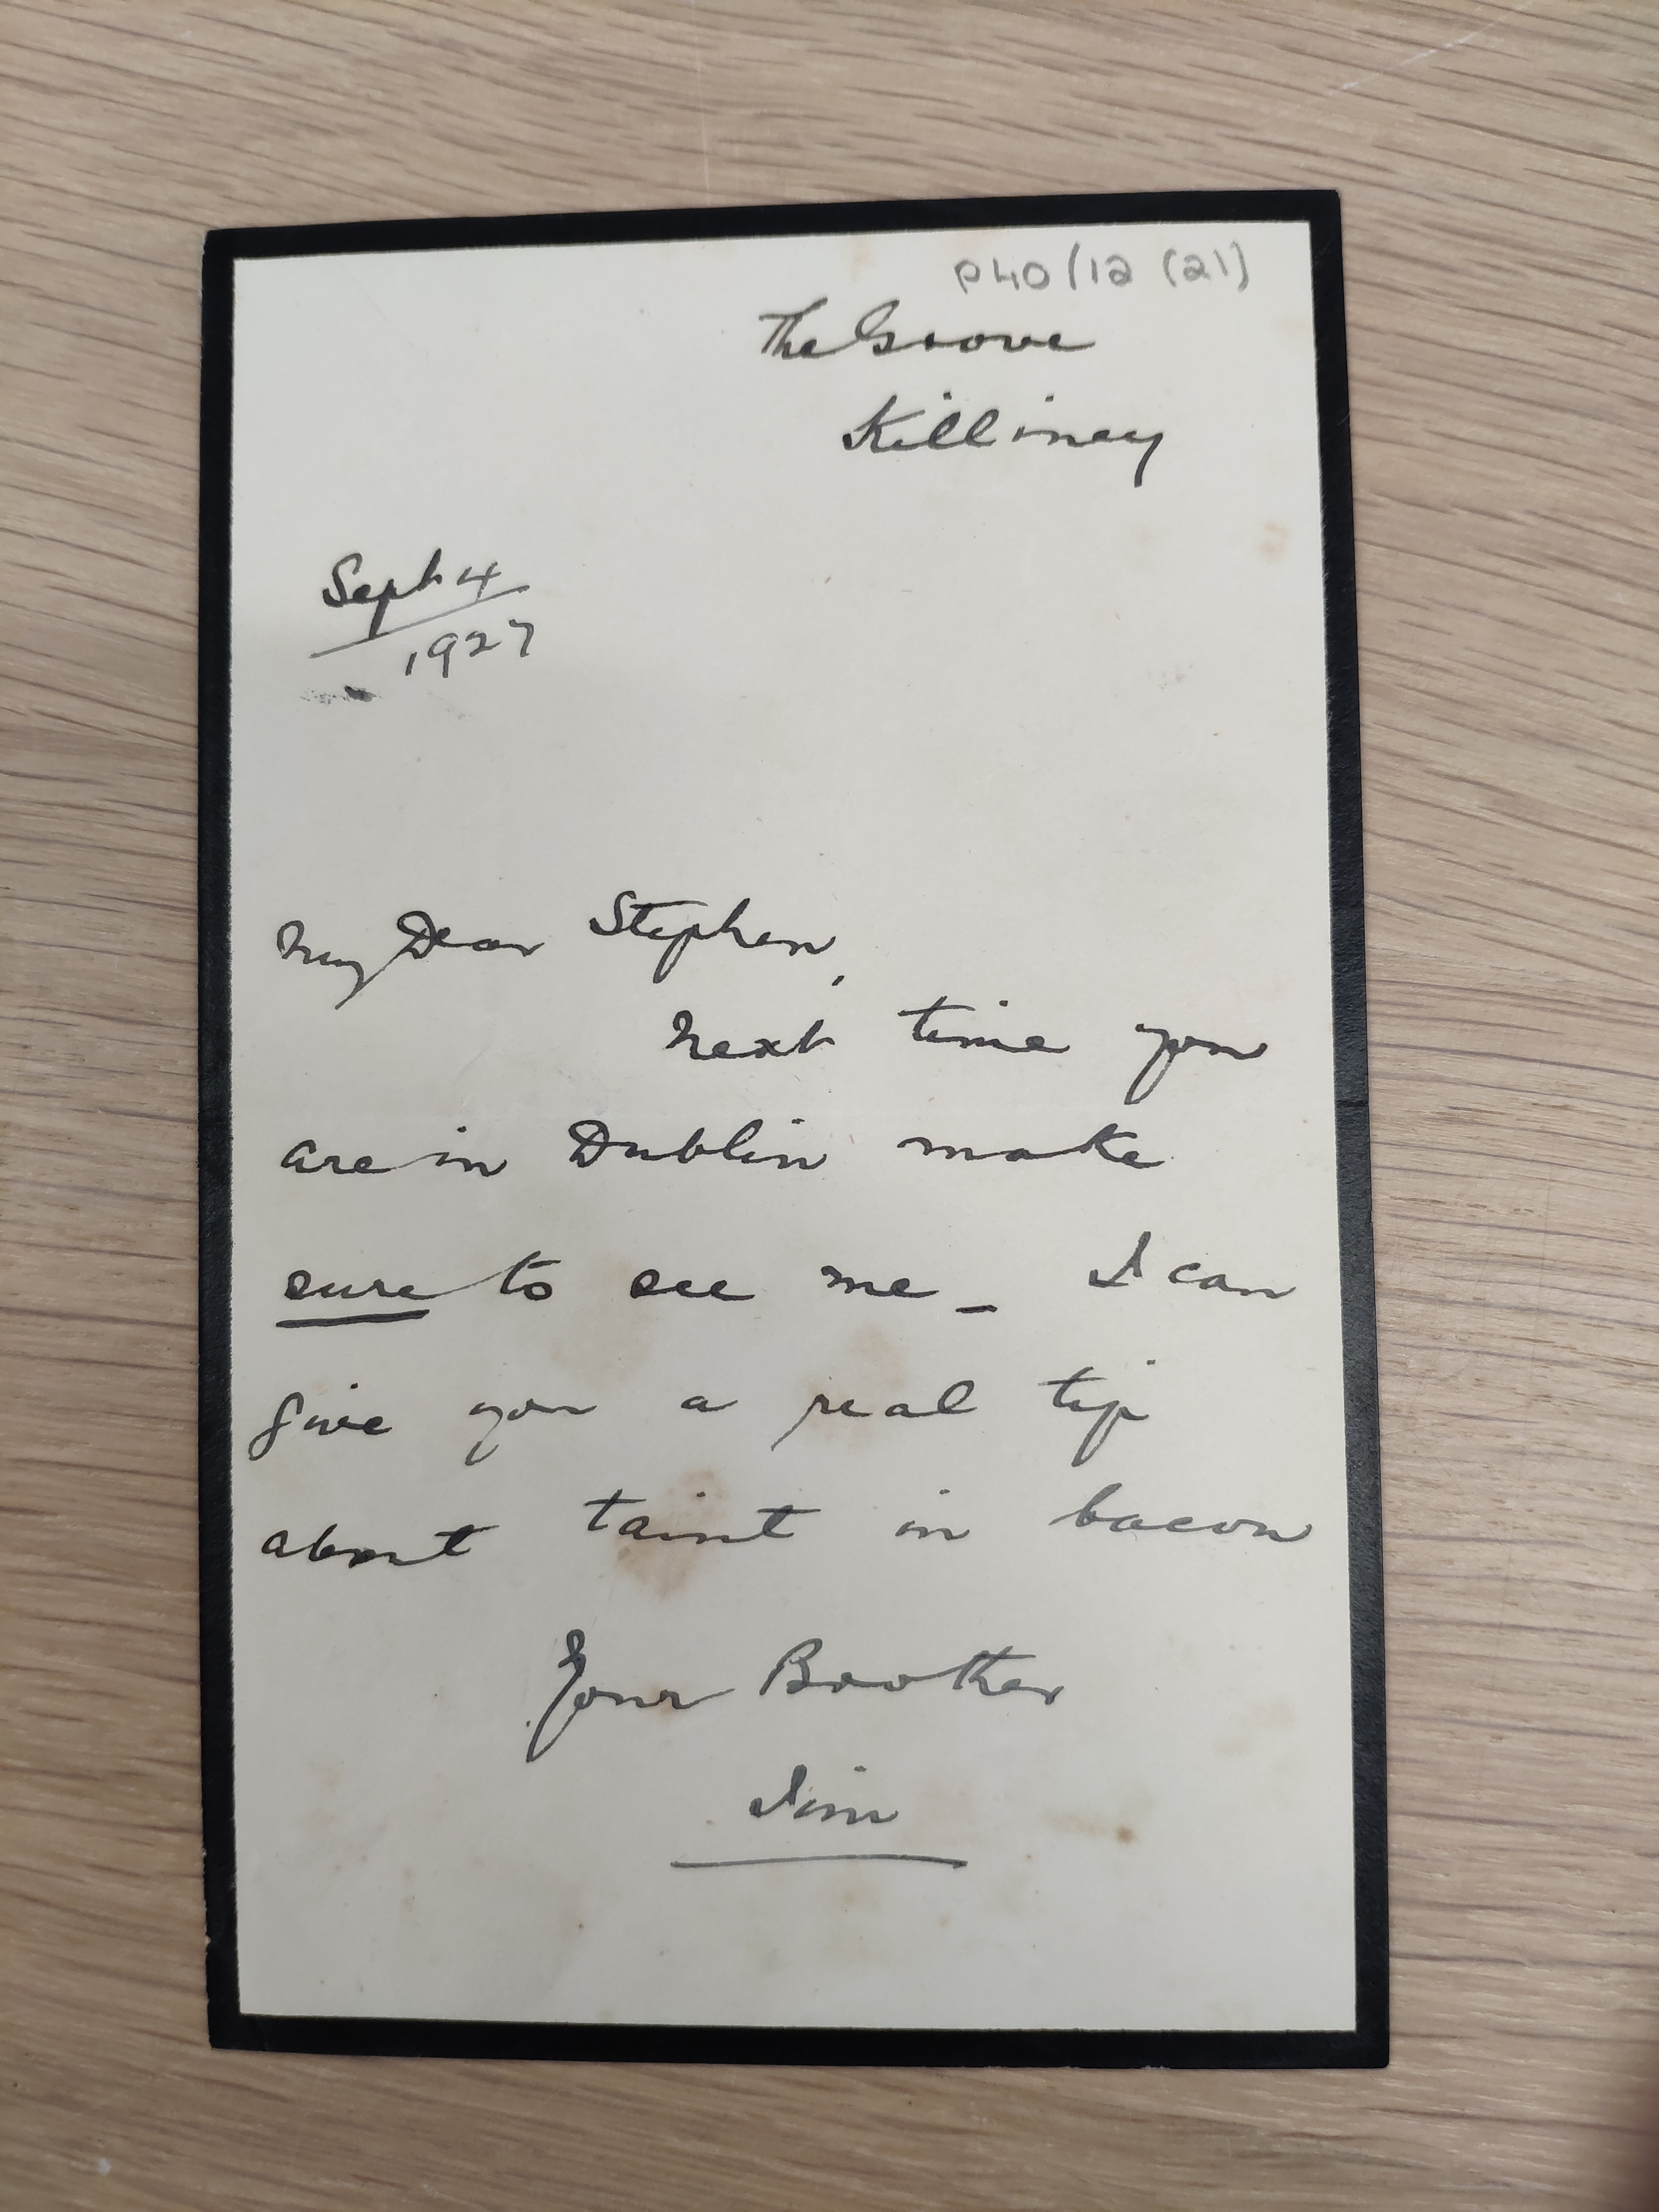 P40/12 (21)
The Grove
Killiney
Sept 4
1927
My Dear Stephen,
Next time you
are in Dublin make
sure to see me _ I can
give you a real tip
about taint in bacon
Your Brother
Jim